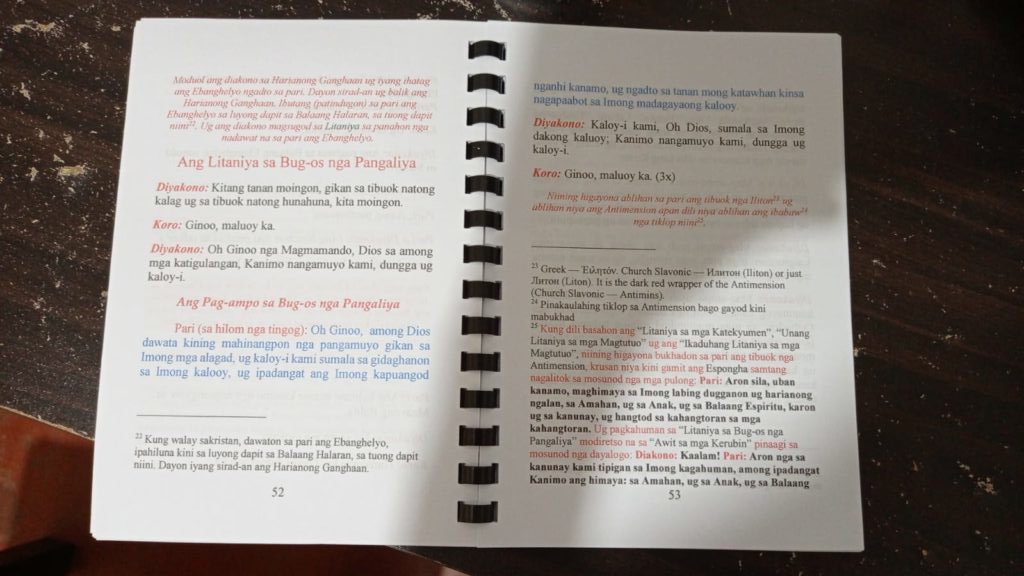 Moduol ang diakono sa Harianong Ganghaan ug iyang ihatag
ang Ebanghelyo ngadto sa pari. Dayon sirad-an ug balik ang
Harianong Ganghaan. Ibutang (patindugon) sa pari ang
Ebanghelyo sa luyong dapit sa Balaang Halaran, sa tuong dapit
niini²². Ug ang diakono magsugod sa Litaniya sa panahon nga
nadawat na sa pari ang Ebanghelyo.
Ang Litaniya sa Bug-os nga Pangaliya
Diyakono: Kitang tanan moingon, gikan sa tibuok natong
kalag ug sa tibuok natong hunahuna, kita moingon.
Koro: Ginoo, maluoy ka.
Diyakono: Oh Ginoo nga Magmamando, Dios sa among
mga katigulangan, Kanimo nangamuyo kami, dungga ug
kaloy-i.
Ang Pag-ampo sa Bug-os nga Pangaliya
Pari (sa hilom nga tingog): Oh Ginoo, among Dios
dawata kining mahinangpon nga pangamuyo gikan sa
Imong mga alagad, ug kaloy-i kami sumala sa gidaghanon
sa Imong kalooy, ug ipadangat ang Imong kapuangod
²² Kung walay sakristan, dawaton sa pari ang Ebanghelyo,
ipahiluna kini sa luyong dapit sa Balaang Halaran, sa tuong dapit
niini. Dayon iyang sirad-an ang Harianong Ganghaan.
52
nganhi kanamo, ug ngadto sa tanan mong katawhan kinsa
nagapaabot sa Imong madagayaong kalooy.
Diyakono: Kaloy-i kami, Oh Dios, sumala sa Imong
dakong kaluoy; Kanimo nangamuyo kami, dungga ug
kaloy-i.
Koro: Ginoo, maluoy ka. (3x)
Niining higayona ablihan sa pari ang tibuok nga Iliton²³ ug
ablihan niya ang Antimension apan dili niya ablihan ang ibabaw²⁴
nga tiklop niini²⁵.
²³ Greek — Ἑιλητόν. Church Slavonic — Илитон (Iliton) or just
Литон (Liton). It is the dark red wrapper of the Antimension
(Church Slavonic — Antimins).
²⁴ Pinakaulahing tiklop sa Antimension bago gayod kini
mabukhad
²⁵ Kung dili basahon ang “Litaniya sa mga Katekyumen”, “Unang
Litaniya sa mga Magtutuo” ug ang “Ikaduhang Litaniya sa mga
Magtutuo”, niining higayona bukhadon sa pari ang tibuok nga
Antimension, krusan niya kini gamit ang Espongha samtang
nagalitok sa mosunod nga mga pulong: Pari: Aron sila, uban
kanamo, maghimaya sa Imong labing dugganon ug harianong
ngalan, sa Amahan, ug sa Anak, ug sa Balaang Espiritu, karon
ug sa kanunay, ug hangtod sa kahangtoran sa mga
kahangtoran. Ug pagkahuman sa “Litaniya sa Bug-os nga
Pangaliya” modiretso na sa “Awit sa mga Kerubin” pinaagi sa
mosunod nga dayalogo: Diakono: Kaalam! Pari: Aron nga sa
kanunay kami tipigan sa Imong kagahuman, among ipadangat
Kanimo ang himaya: sa Amahan, ug sa Anak, ug sa Balaang
53